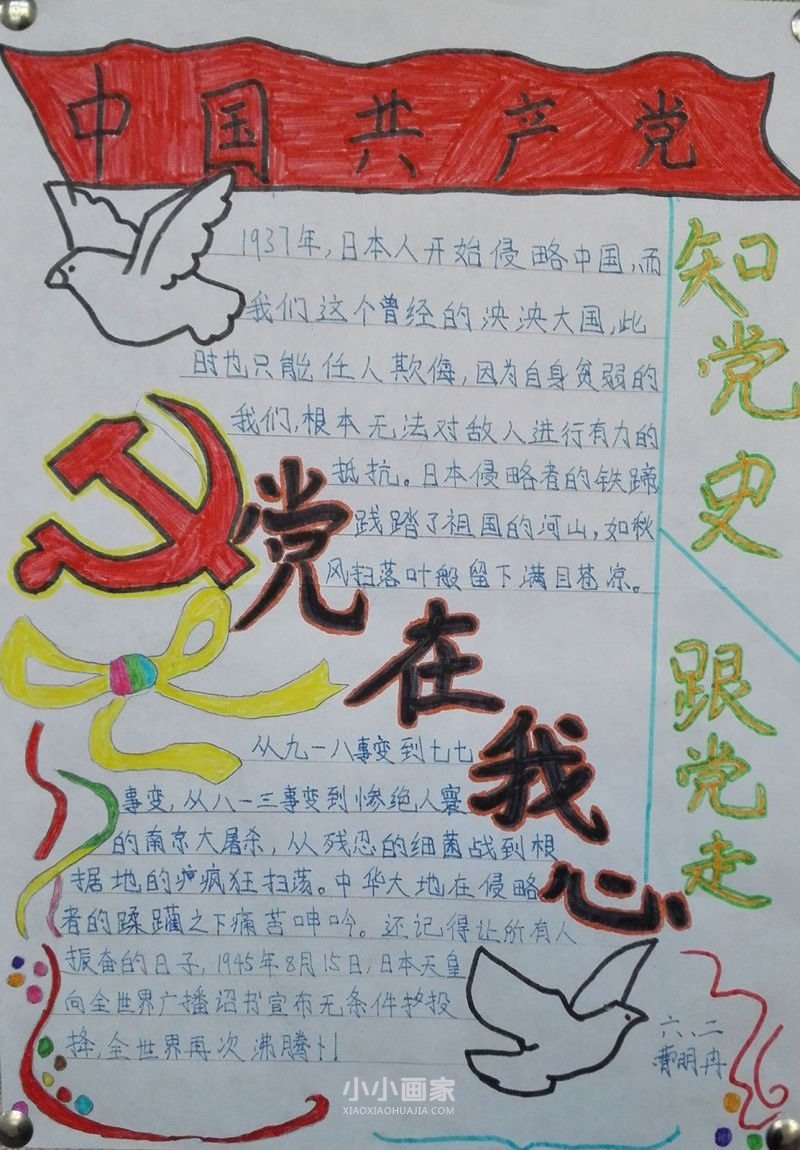 中国共产党
1937年,日本人开始侵略中国,而
我们这个曾经的泱泱大国,此
时也只能任人欺侮,因为自身贫弱的
我们,根本无法对敌人进行有力的
抵抗。日本侵略者的铁蹄
践踏了祖国的河山,如秋
风扫落叶般留下满目苍凉。
知党史
跟党走
党在我心
从九一八事变到七七
事变,从八一三事变到惨绝人寰
的南京大屠杀,从残忍的细菌战到根
据地的疯狂扫荡。中华大地在侵略
者的蹂躏之下痛苦呻吟。还记得让所有人
振奋的日子,1945年8月15日,日本天皇
向全世界广播诏书宣布无条件投
降,全世界再次沸腾!!
六、二
曹明冉
小小画家
XIAOXIAOHUAJIA.COM